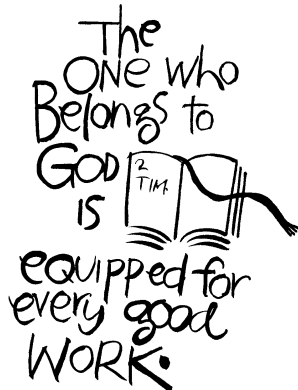 The
ONE who
Belongs to
GOD
2
TIM.
is
equipped for
every good
WORK.